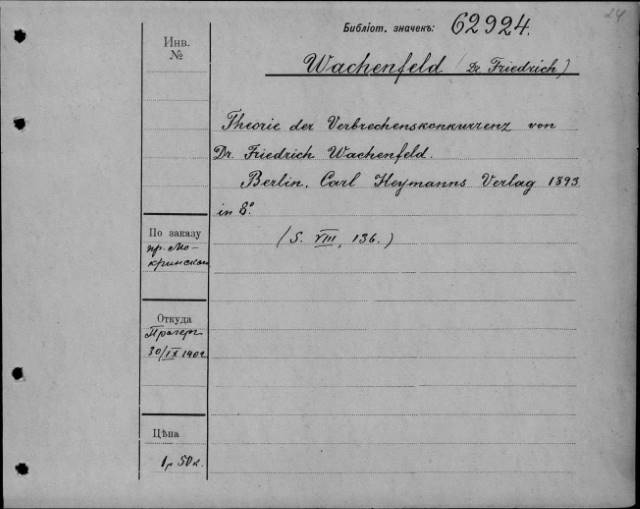 24
Библіот. значекъ: 62924.
Инв.
№
Wachenfeld (Dr Friedrich)
Theorie der Verbrechenskonkurrenz von
Dr. Friedrich Wachenfeld.
Berlin, Carl Heymanns Verlag 1893
in 8°.
(S. VIII, 136.)
По заказу
пр. Мо-
кринскаго
Откуда
Прагеръ
30/IX 1902
Цѣна
1 р 50 к.